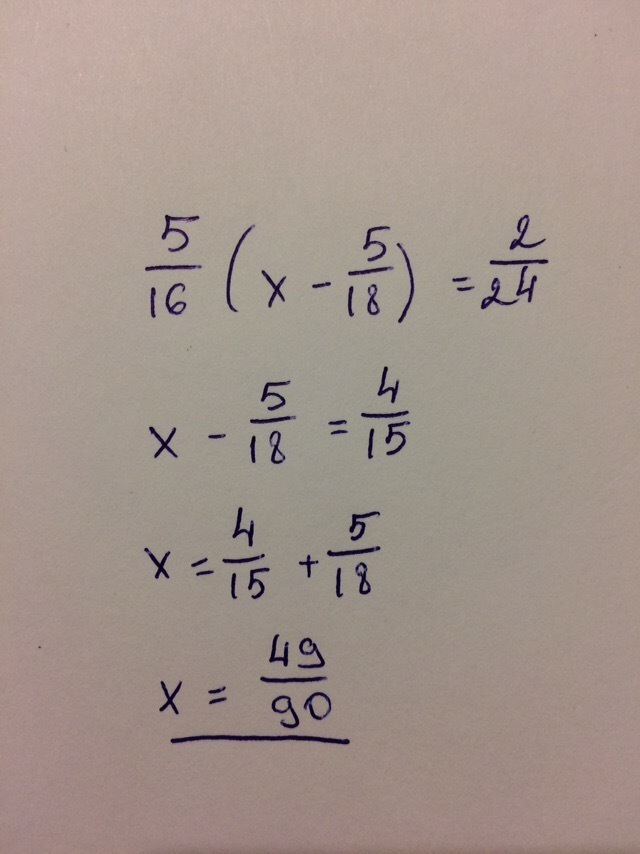 5/16 (x - 5/18) = 2/24
x - 5/18 = 4/15
x = 4/15 + 5/18
x = 49/90